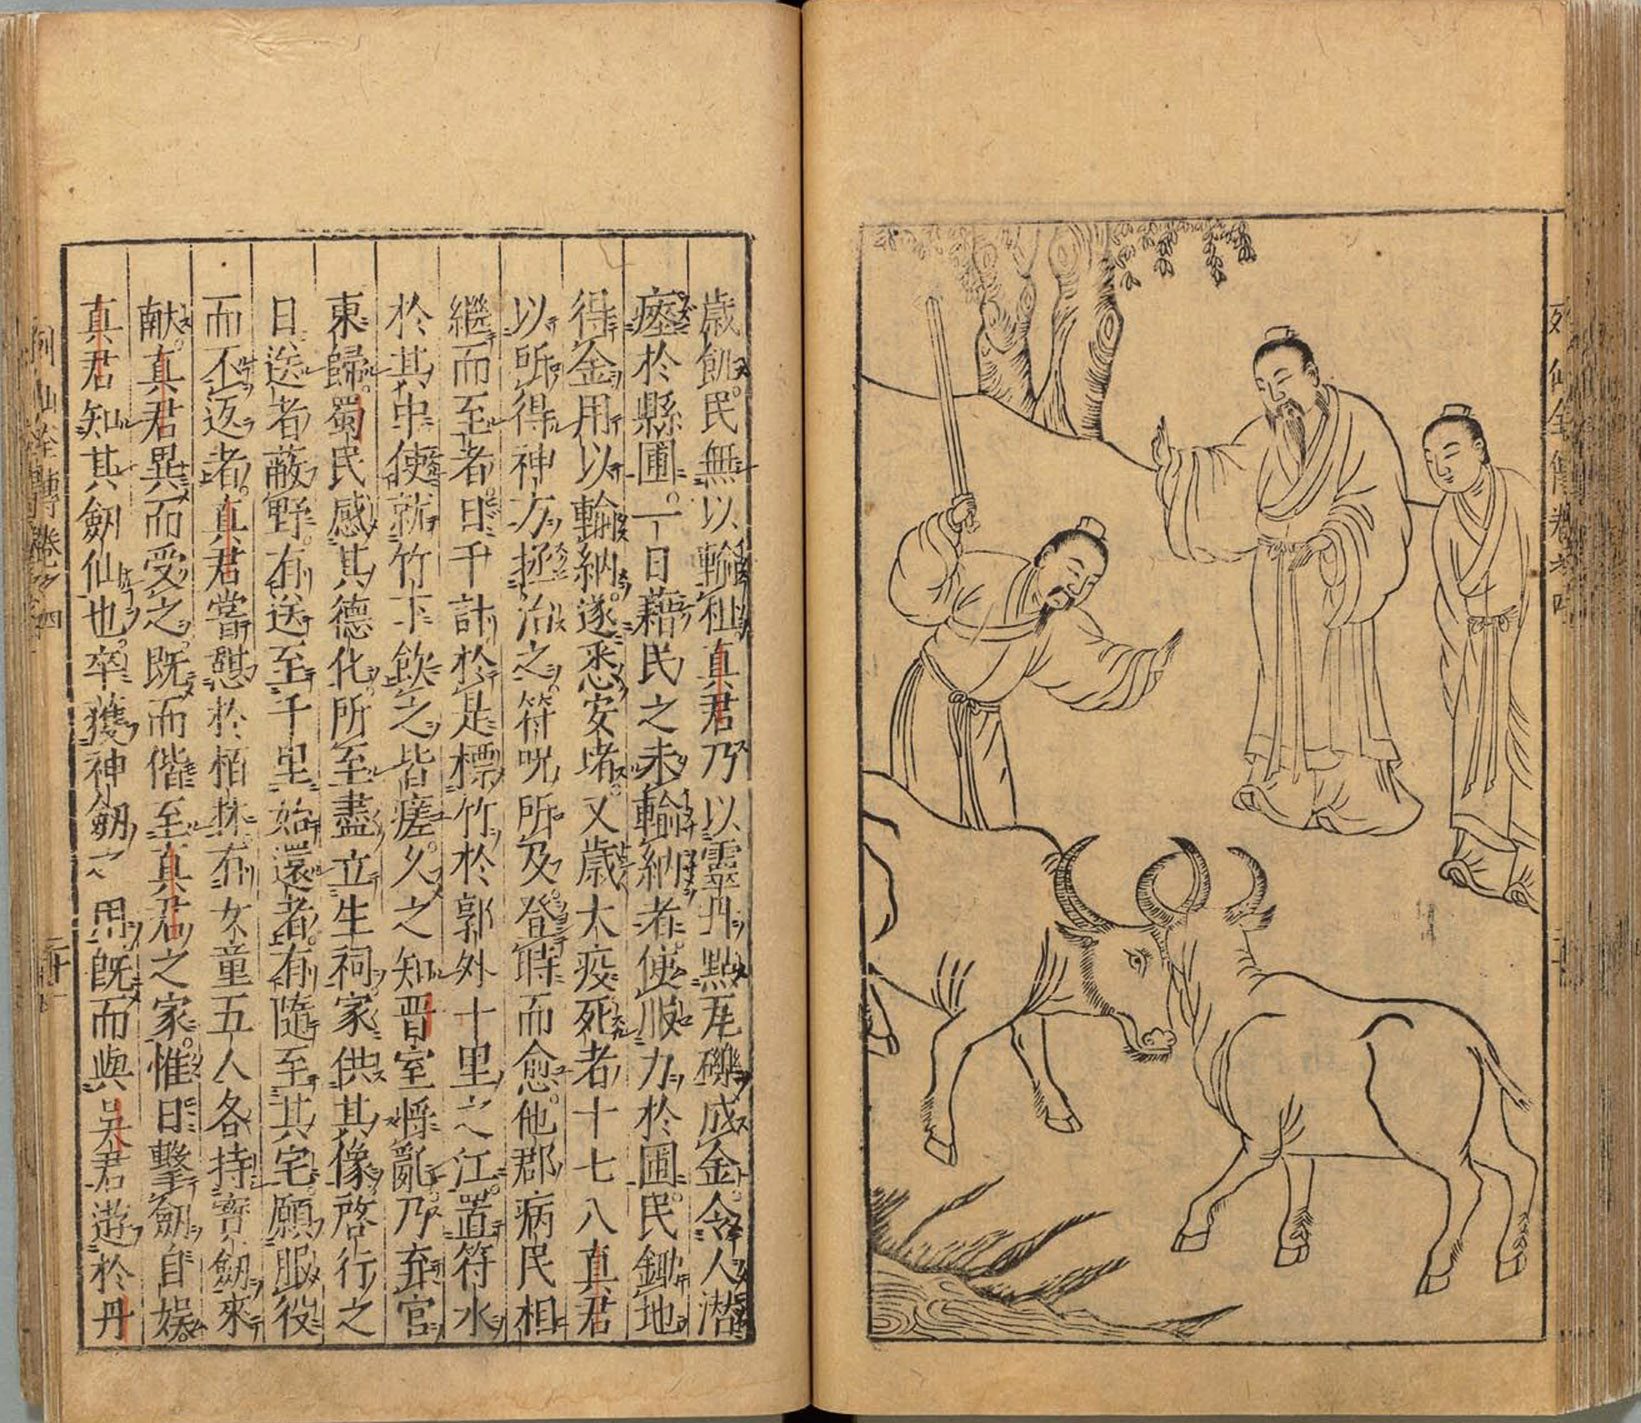 歳飢民無以輸租真君乃以靈丹點瓦礫成金令人潜
瘞於縣圃一日藉民之未輸納者使服力於圃民鋤地
得金用以輸納遂悉安堵又歳大疫死者十七八真君
以所得神方拯治之符呪所及登時而愈他郡病民相
繼而至者日千計於是標竹於郭外十里之江置符水
於其中使就竹下飲之皆瘥久之知晋室將亂乃弃官
東歸蜀民感其德化所至盡立生祠家供其像啓行之
日送者蔽野有送至千里始還者有隨至其宅願服役
而不返者真君嘗憇於栢林有女童五人各持寳劔來
献真君異而受之既而偕至真君之家惟日擊劔自娯
真君知其劔仙也卒獲神劔之用既而與吴君遊於丹
列仙全傳卷之四